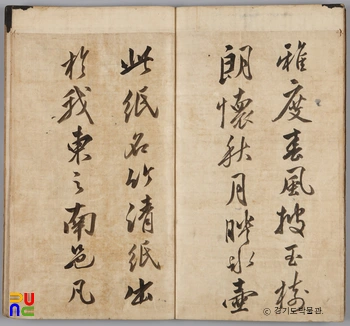 雅度春風披玉樹
朗懷秋月映氷壺
此紙名竹清紙出
於我東之南邑凡
ⓒ 경기도박물관